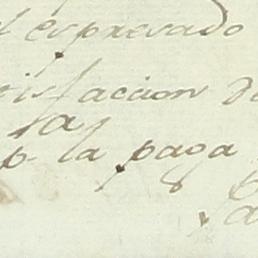 el espresado
tisfaccion de
la
p. la paga